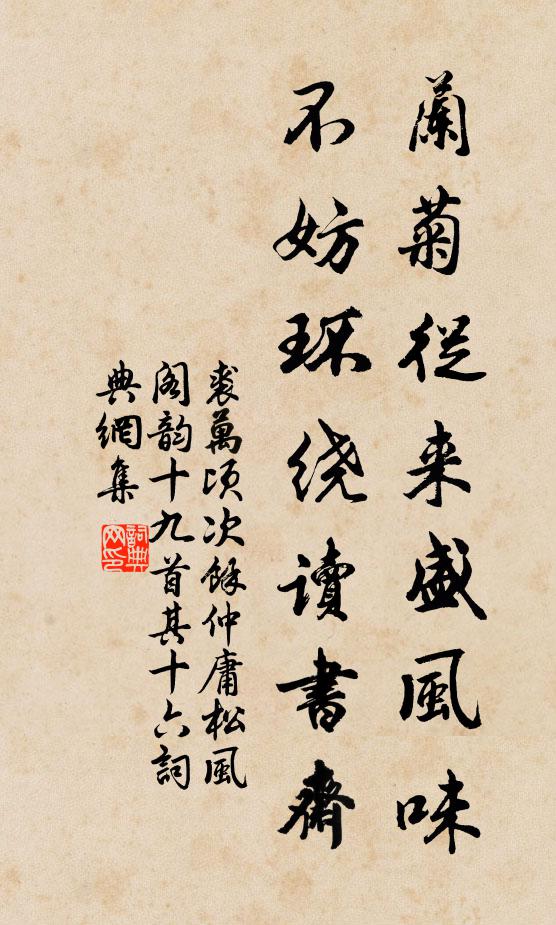 蘭菊從来盛風味
不妨環绕讀書齋
裘萬頃次餘仲庸松風
閣韵十九首其十六詞
典網集
詞典
网印